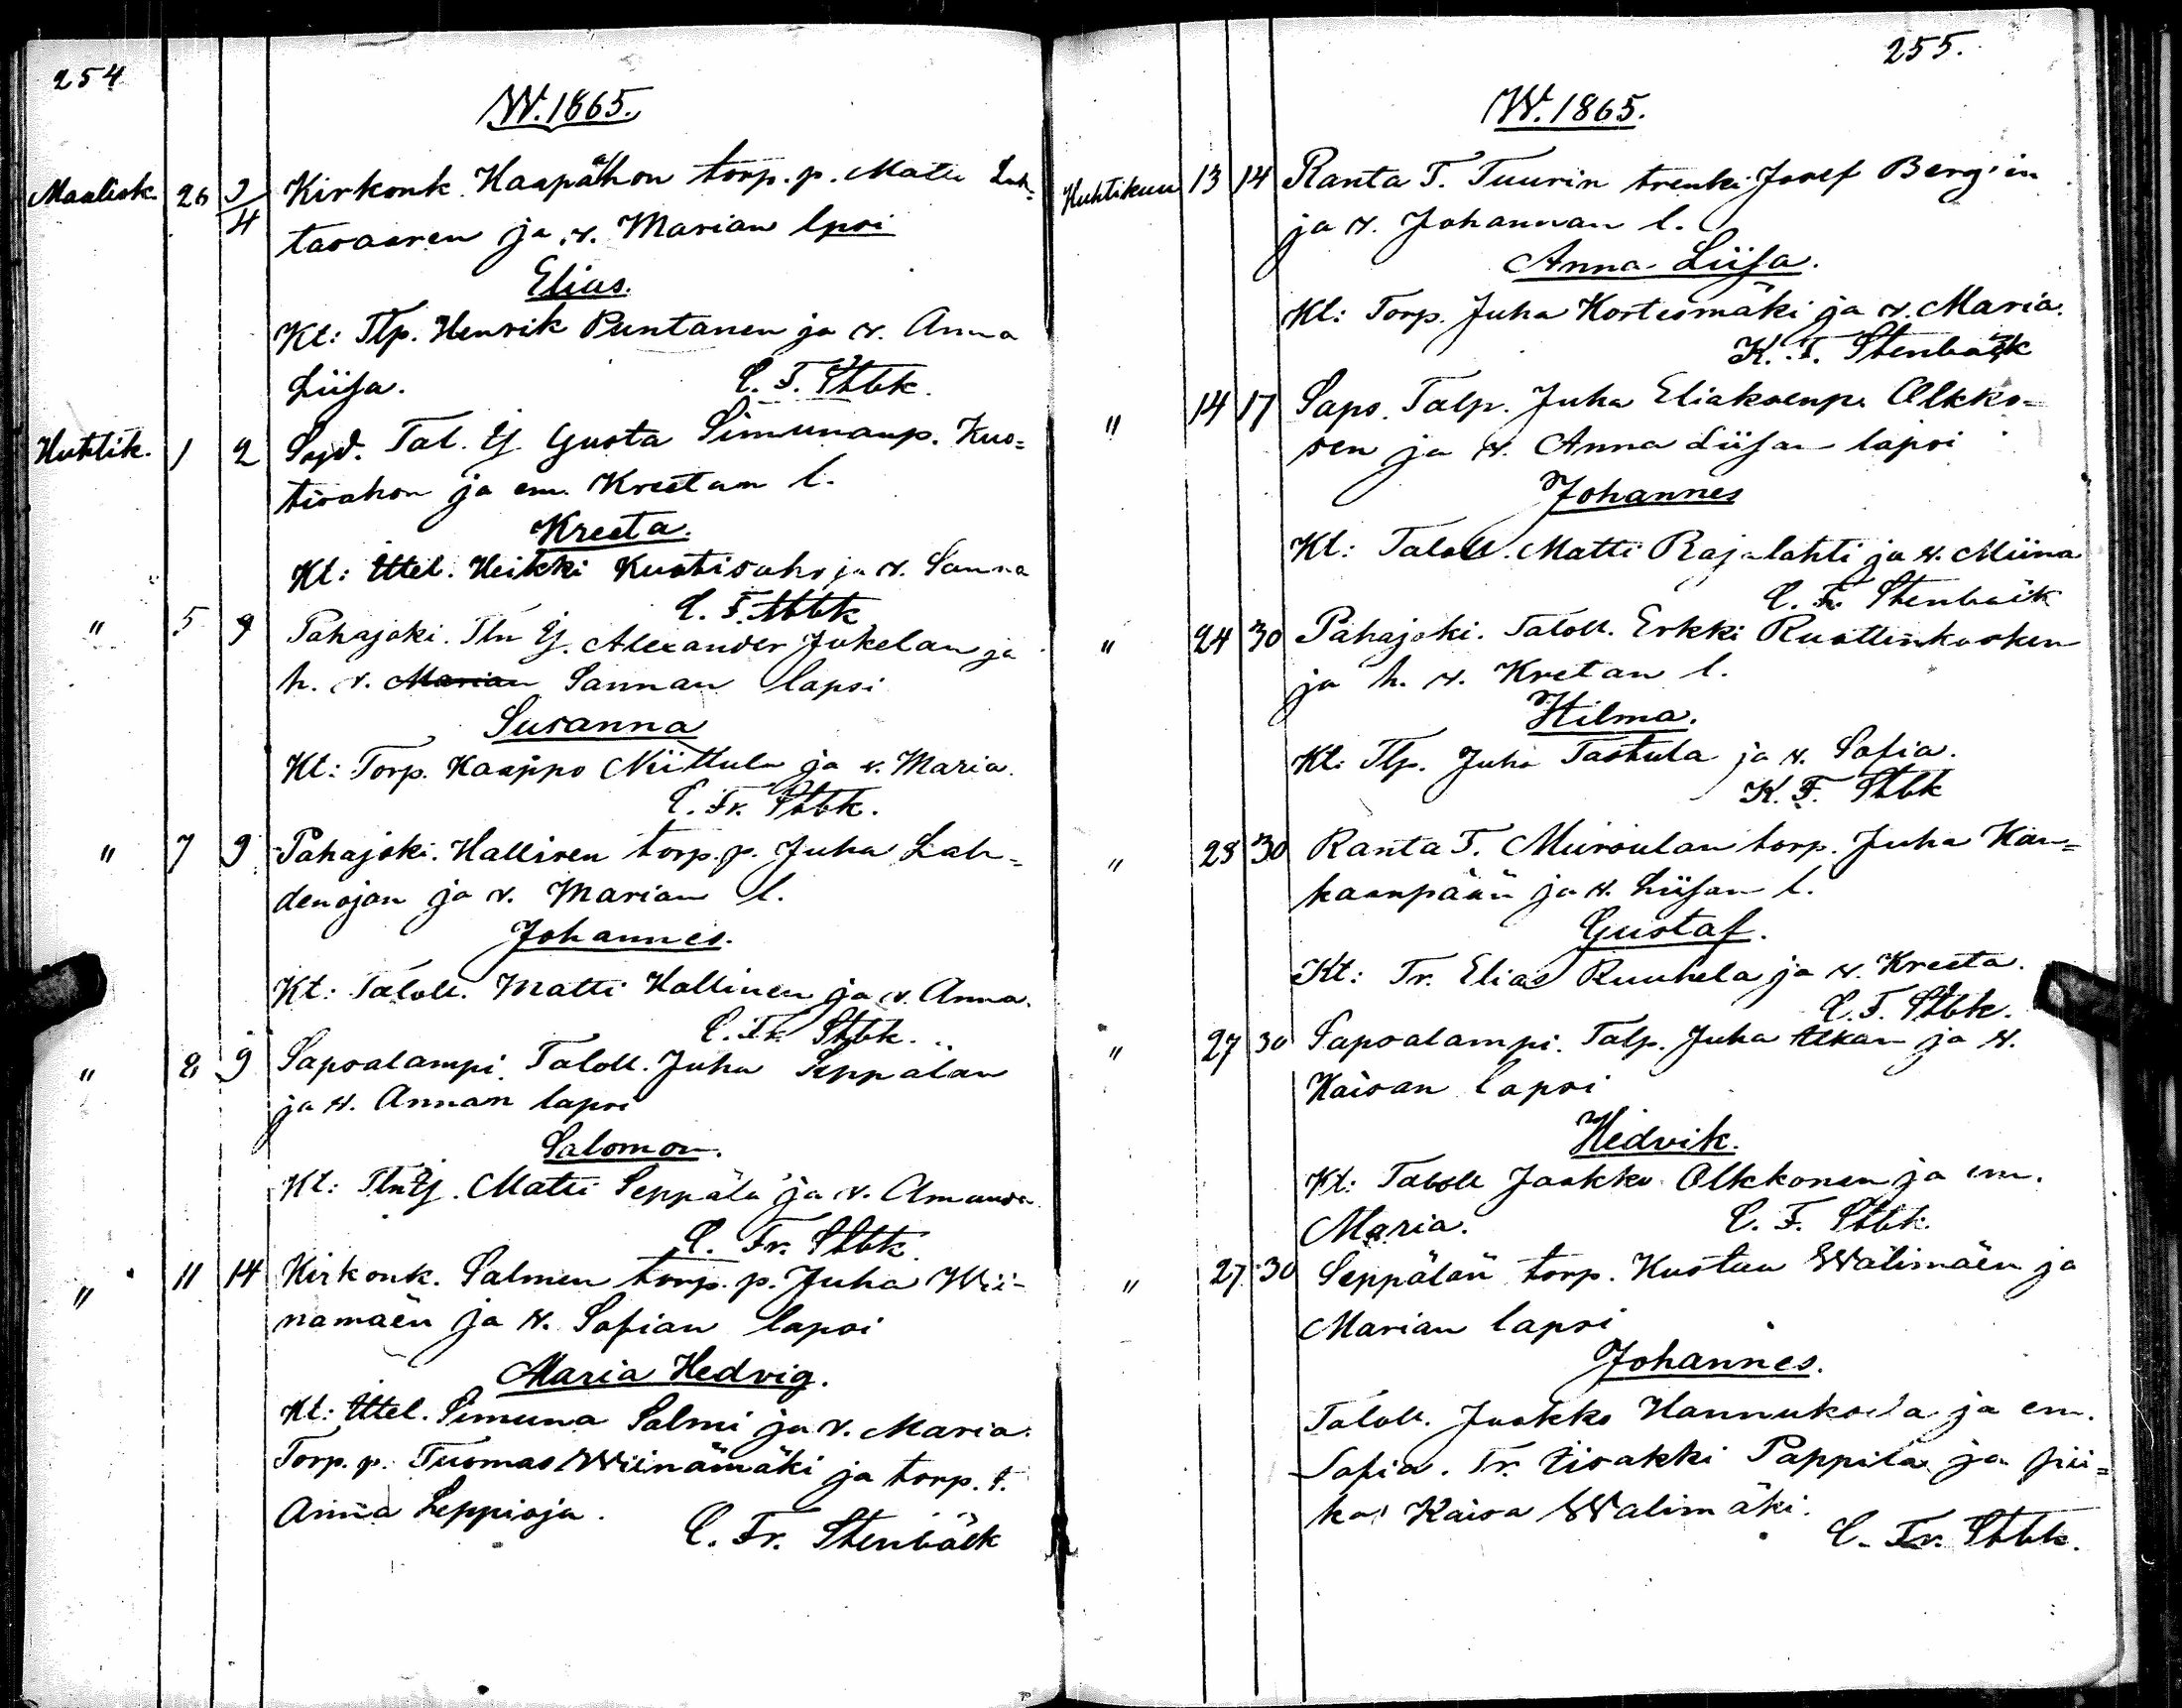 254
W. 1865.
Maalisk. 26 2/4 Kirkonk. Haapahon torp. p. Matti Luh-
tasaaren ja v. Marian lpsi
Elias.
Kt: Tlp. Henrik Puntanen ja v. Anna
Liisa. C. F. Stbk.
Huhtik. 1 2 Tal. Ij. Gusta Simunanp. Kus-
tisahon ja em. Kreetan l.
Kreeta.
Kt: Ittel. Heikki Kustisaho ja v. Sanna
C. F. Stbk
" 5 9 Pahajoki. Tln Ij. Alexander Jukelan ja
h. v. Marian Sannan lapsi
Susanna
Kt: Torp. Kaappo Niittula ja v. Maria.
C. Fr. Stbk.
" 7 9 Pahajoki. Hallisen torp. p. Juha Lah-
denojan ja v. Marian l.
Johannes.
Kt: Taloll. Matti Hallinen ja v. Anna.
C. Fr. Stbk.
" 8 9 Sapsalampi. Taloll. Juha Seppälän
ja v. Annan lapsi
Salomon.
Kt: Tln Ij. Matti Seppälä ja v. Amanda
C. Fr. Stbk.
" 11 14 Kirkonk. Salmen torp. p. Juha Wii-
namäen ja v. Sofian lapsi
Maria Hedvig.
Kt: Ittel. Simuna Salmi ja v. Maria.
Torp. p. Tuomas Wiinämäki ja torp. t.
Anna Leppioja. C. Fr. Stenbäck
255.
W. 1865.
Huhtikuu 13 14 Ranta T. Tuurin trenki Josef Berg'in
ja v. Johannan l.
Anna-Liisa.
Kt: Torp. Juha Kortesmäki ja v. Maria.
K. F. Stenbäck
" 14 17 Saps. Talp. Juha Eliaksenp. Olkko-
sen ja v. Anna Liisan lapsi
Johannes
Kt: Taloll. Matti Rajalahti ja v. Miina
C. Fr. Stenbäck
" 24 30 Pahajoki. Taloll. Erkki Ruottinkosken
ja h. v. Kretan l.
Hilma.
Kt: Tlp. Juha Tastula ja v. Sofia.
K. F. Stbk
" 23 30 Ranta T. Muroulan torp. Juha Kan-
kaanpään ja v. Liisan l.
Gustaf.
Kt: Tr. Elias Ruuhela ja v. Kreeta.
C. F. Stbk.
" 27 30 Sapsalampi. Talp. Juha Alkan ja v.
Kaisan lapsi
Hedvik.
Kt: Taloll Jaakko Olkkonen ja em.
Maria. C. F. Stbk.
" 27 30 Seppälän torp. Kustaa Wälimäen ja
Marian lapsi
Johannes.
Taloll. Jaakko Hannuksela ja em.
Sofia. Tr. Iisakki Pappila ja pii-
ka Kaisa Wälimäki.
C. Fr. Stbk.